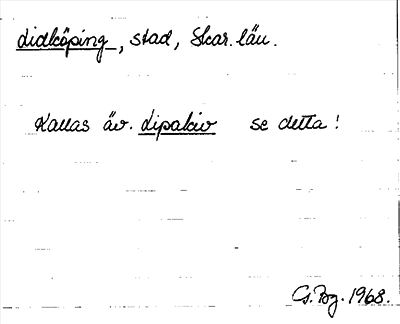 Lidköping, stad, Skar. län.
Kallas äv. Lipakiv se detta!
Cs. Bg. 1968.